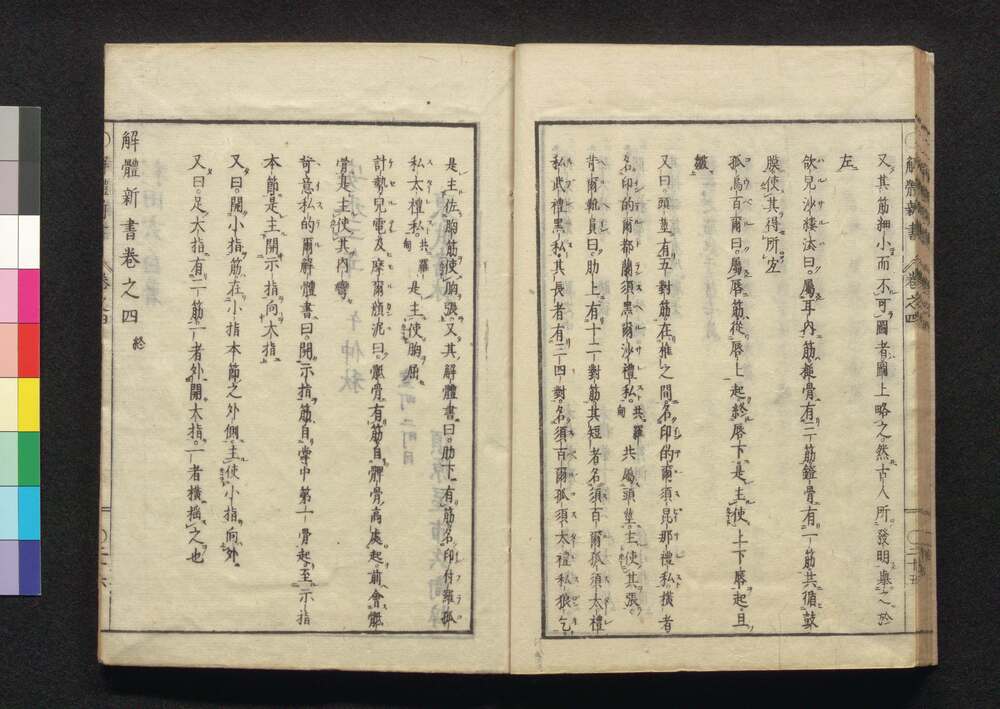 又其筋細小而不可圖者圖上略之然古人所發明擧之於
左
欲兒沙棲法曰屬耳內筋槌骨有三筋鐙骨有一筋共循鼓
膜使其得所宜
孤烏百爾曰屬唇筋從唇上起終唇下是主使上下唇起且
皺
又曰頭莖有五對筋在椎之間名印的爾須昆那禮私橫者
名印的爾都蘭須黑爾沙禮私共羅甸共屬頭莖主使其張
背爾軌員曰肋上有十二對筋其短者名須百爾孤須太禮
私武禮黑私其長者有三四對名須百爾孤須太禮私狼乞
是主佐胸筋使胸張又其解體書曰肋下有筋名印付羅孤
私太禮私共羅甸是主使胸屈
計勢兒電及摩爾頷泥曰臗骨有筋自髀骨高處起前會臗
骨是主使其內彎
奇意私的爾解體書曰開示指筋自掌中第一骨起至示指
本節是主開示指向大指
又曰開小指筋在小指本節之外側主使小指向外
又曰足大指有二筋一者外開大指一者橫搖之也
解體新書卷之四 終
解體新書 卷之四